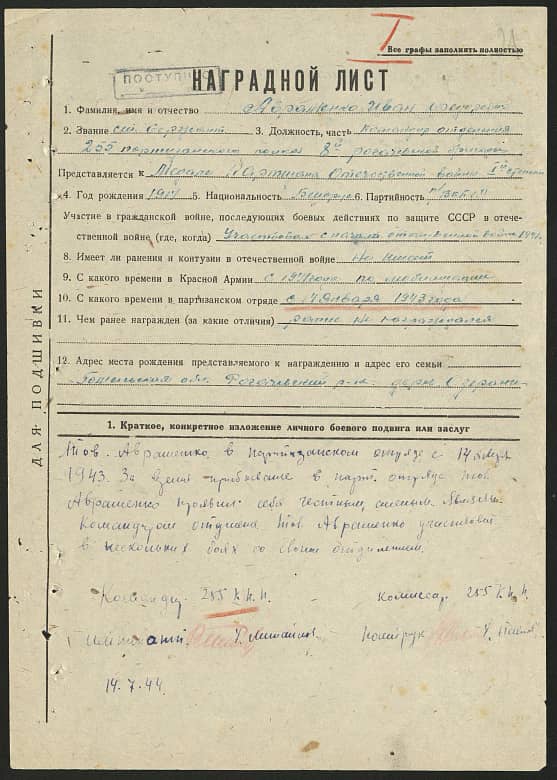 I
Все графы заполнять полностью
ПОСТУПИЛО
НАГРАДНОЙ ЛИСТ
1. Фамилия, имя и отчество Авраменко Иван
2. Звание ст. сержант 3. Должность, часть командир отделения
255 партизанского полка 8й рогачевской бригады
Представляется к Медали Партизана Отечественной войны I й степени
4. Год рождения 5. Национальность Белорус 6. Партийность ВКП(б)
Участие в гражданской войне, последующих боевых действиях по защите СССР в отече-
ственной войне (где, когда) Участвовал с начала отечественной войны 1941
8. Имеет ли ранения и контузии в отечественной войне Не имеет
9. С какого времени в Красной Армии с 1941 года по мобилизации
10. С какого времени в партизанском отряде с 14 января 1943 года
11. Чем ранее награжден (за какие отличия) ранее не награждался
12. Адрес места рождения представляемого к награждению и адрес его семьи
Гомельская обл. Рогачевский р-н
ДЛЯ ПОДШИВКИ
1. Краткое, конкретное изложение личного боевого подвига или заслуг
Тов. Авраменко в партизанском отряде с 14 января
1943. За время пребывание в парт. отряде тов.
Авраменко проявил себя честным, смелым
командиром отделения. Тов. Авраменко участвовал
в нескольких боях со своим отделением.
Командир 255 К.п.п. Комиссар 255 К.п.п.
14.7.44